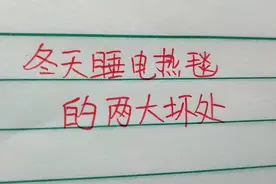 冬天睡电热毯
的两大坏处